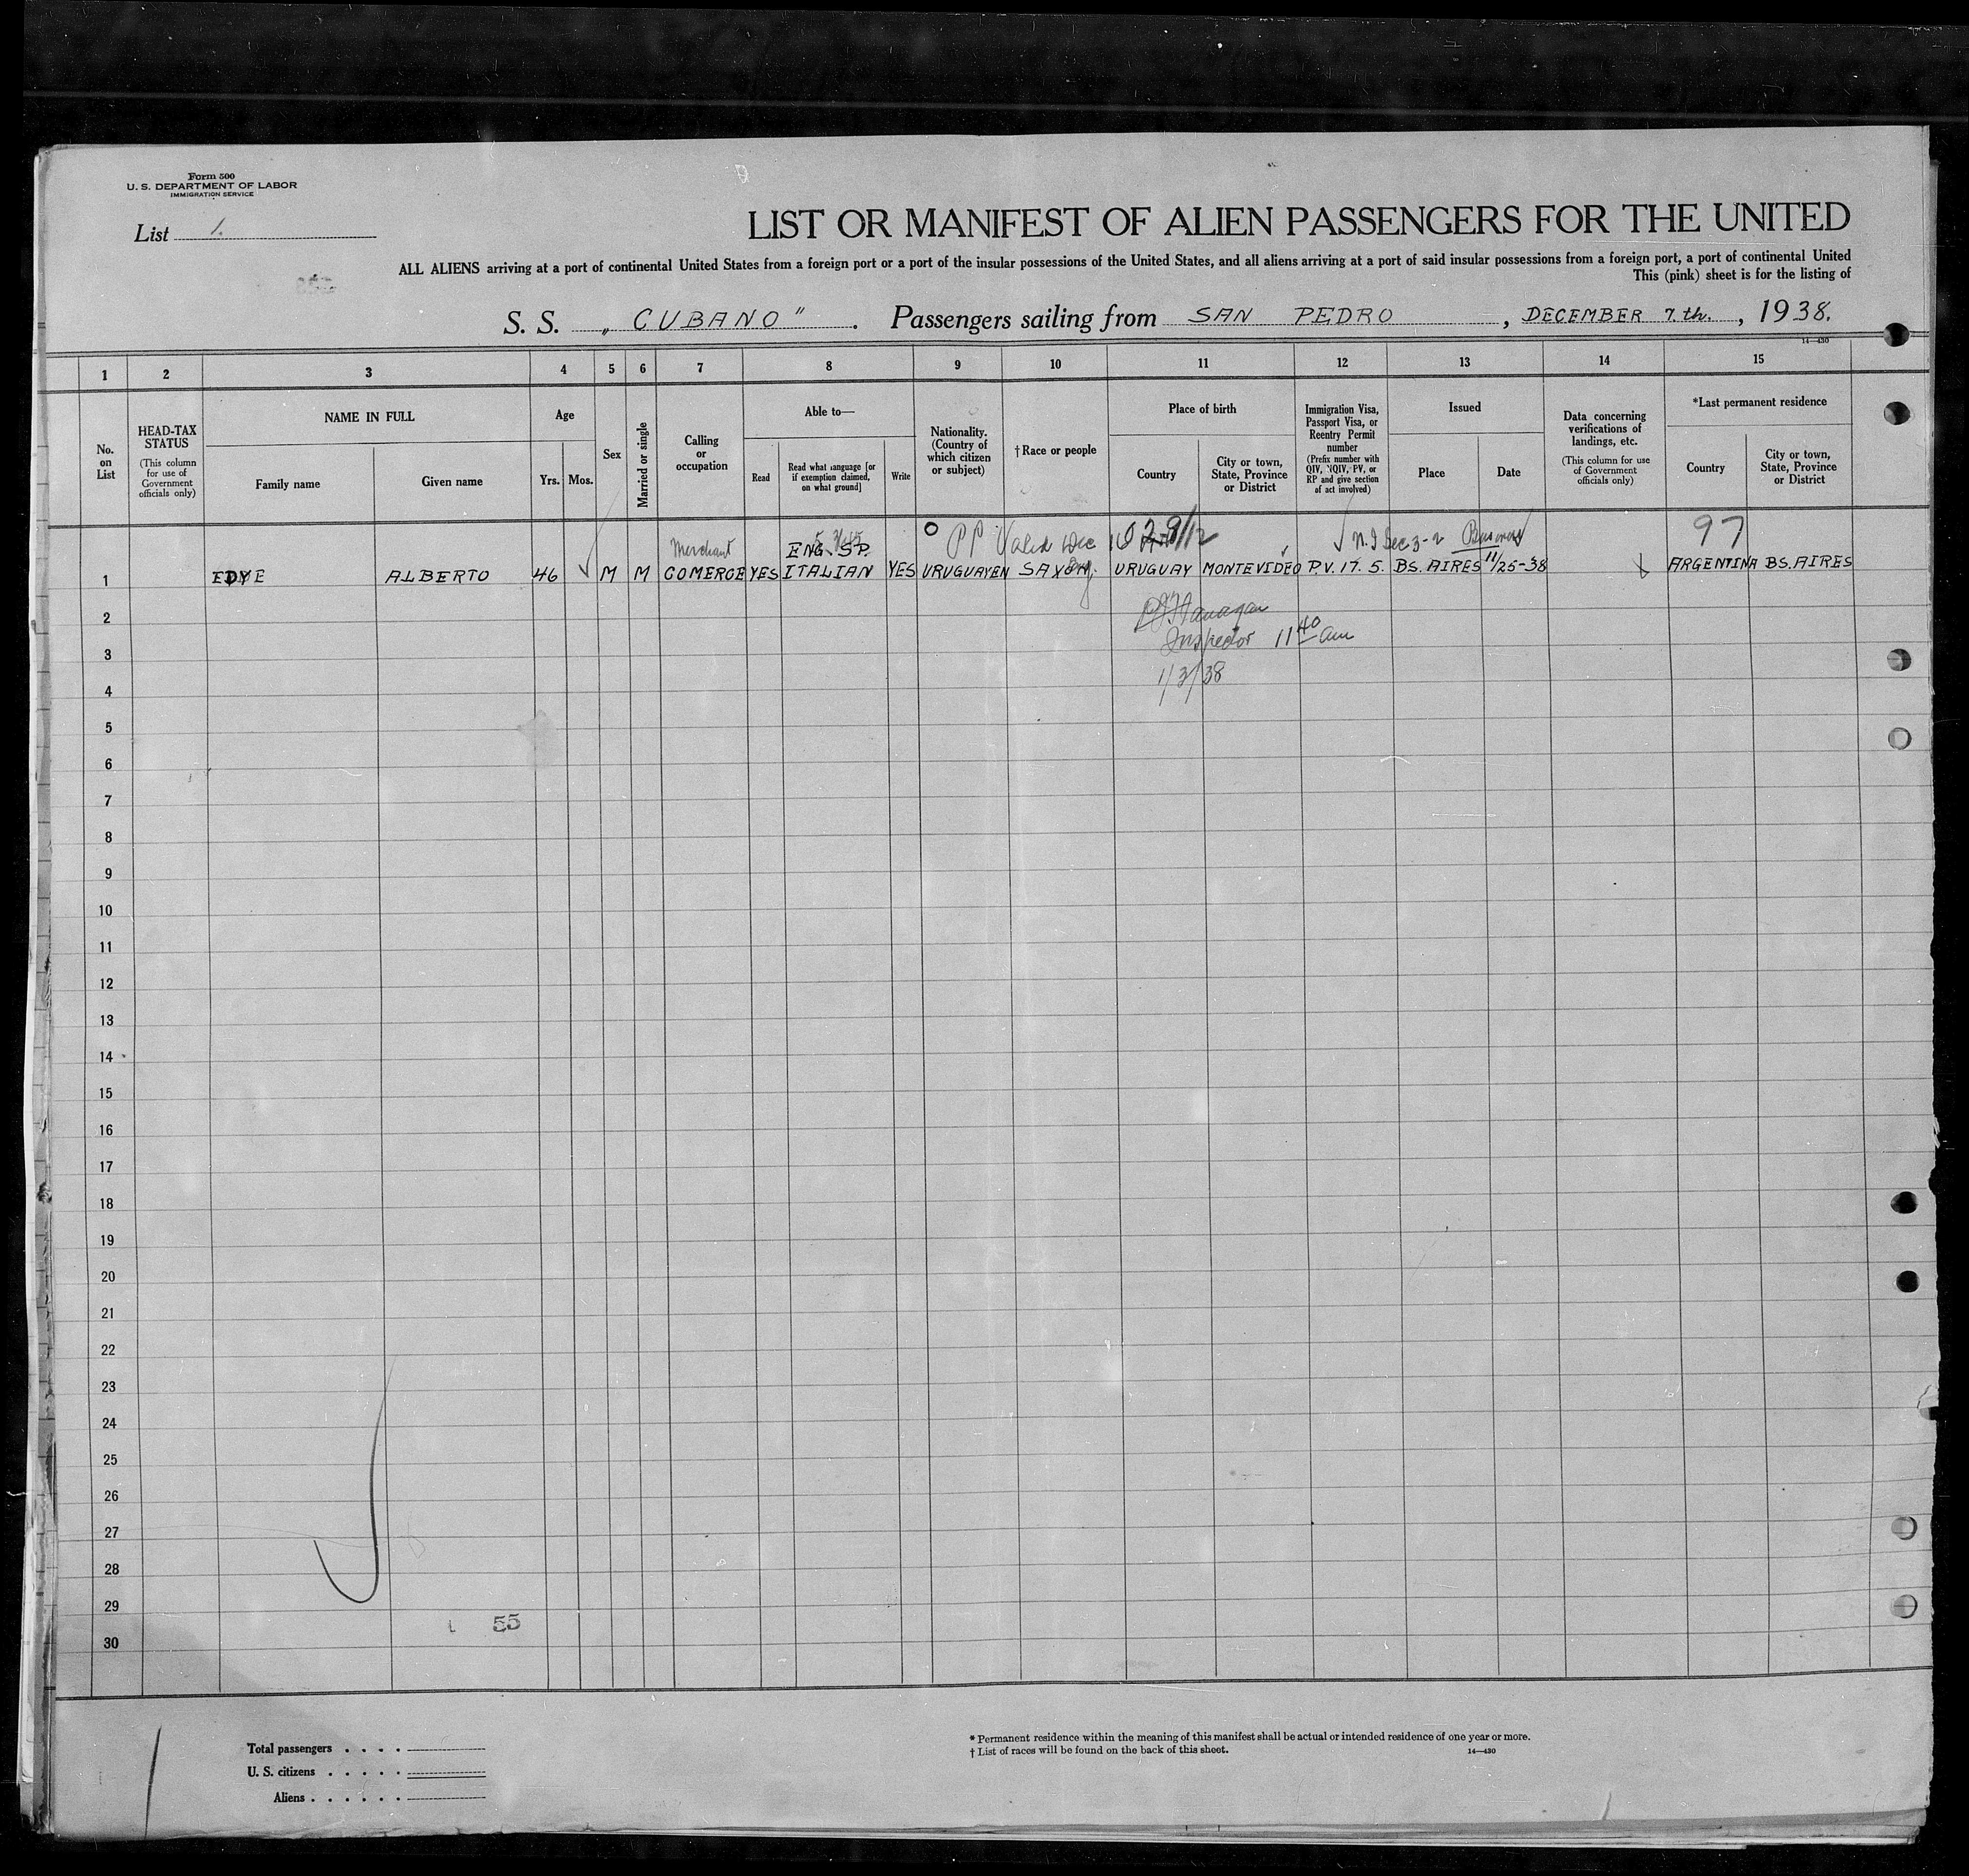 Form 500
U. S. DEPARTMENT OF LABOR
IMMIGRATION SERVICE
List 1.
LIST OR MANIFEST OF ALIEN PASSENGERS FOR THE UNITED
ALL ALIENS arriving at a port of continental United States from a foreign port or a port of the insular possessions of the United States, and all aliens arriving at a port of said insular possessions from a foreign port, a port of continental United
This (pink) sheet is for the listing of
S. S. „ CUBANO ". Passengers sailing from SAN PEDRO, DECEMBER 7.th., 1938.
14—430
1 2 3 4 5 6 7 8 9 10 11 12 13 14 15
No. on List
HEAD-TAX STATUS (This column for use of Government officials only)
NAME IN FULL
Family name
Given name
Age
Yrs.
Mos.
Sex
Married or single
Calling or occupation
Able to—
Read
Read what language [or if exemption claimed, on what ground]
Write
Nationality. (Country of which citizen or subject)
† Race or people
Place of birth
Country
City or town, State, Province or District
Immigration Visa, Passport Visa, or Reentry Permit number (Prefix number with QIV, NQIV, PV, or RP and give section of act involved)
Issued
Place
Date
Data concerning verifications of landings, etc. (This column for use of Government officials only)
*Last permanent residence
Country
City or town, State, Province or District
Merchant ENG. SP. PP Valid Dec N.I Sec 3-2 97
1 EDYE ALBERTO 46 M M COMERCE YES ITALIAN YES URUGUAYEN SAXON URUGUAY MONTEVIDEO P.V. 17. 5. BS. AIRES 11/25-38 ARGENTINA BS. AIRES
2
Inspector 11 40 am
3
1/3/38
4
5
6
7
8
9
10
11
12
13
14
15
16
17
18
19
20
21
22
23
24
25
26
27
28
29
55
30
Total passengers . . . .
U. S. citizens . . . . .
Aliens . . . . . .
* Permanent residence within the meaning of this manifest shall be actual or intended residence of one year or more.
† List of races will be found on the back of this sheet.
14—430